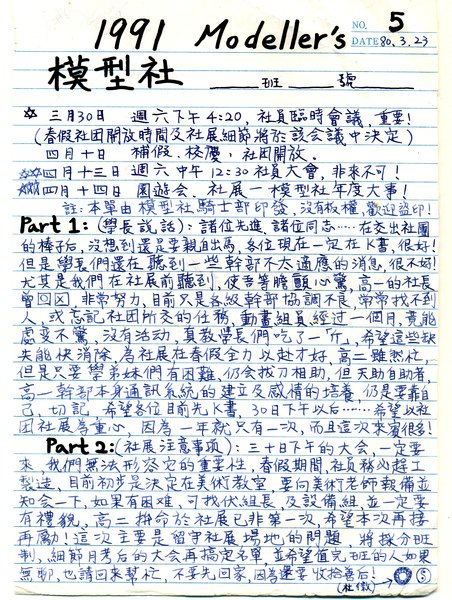 1991 Modeller's NO. 5
DATE 80.3.23
模型社 班 號
三月30日 週六下午4:20, 社員臨時會議, 重要!
(春假社团開放時間及社展細節將於該會議中決定)
四月十日 補假. 校慶, 社团開放.
四月十三日 週六中午12:30社員大會, 非來不可!
四月十四日 園遊会、社展—模型社年度大事!
註:本單由模型社騎士部印發, 沒有板權, 歡迎盜印!
Part 1:(學長說話):諸位先進, 諸位同志……在交出社團
的棒子后, 沒想到還是要親自出馬, 各位現在一定在K書, 很好!
但是學長們還在聽到一些幹部不太適應的消息, 很不好!
尤其是我們在社展前聽到, 使吾等膽顫心驚, 高一的社長
曾囗囗, 非常努力, 目前只是各級幹部協調不良, 常常找不到
人, 或忘記社团所交的任務, 動畫組員經过一個月, 竟能
處变不驚, 沒有活动, 真教學長們吃了一斤, 希望這些缺
失能快消除, 為社展在春假全力以赴才好, 高二雖然忙,
但是只要學弟妹們有困难, 仍会拔刀相助, 但天助自助者,
高一幹部本身通訊系統的建立及感情的培養, 仍是要靠自
己, 切記, 希望各位目前先K書, 30日下午以后……希望以社
团社展為重心, 因為一年就只有一次, 而且這次來賓很多!
Part 2:(社展注意事項):三十日下午的大会, 一定要
來, 我們無法形容它的重要性, 春假期間, 社員務必趕工
製造, 目前初步是決定在美術教室, 要向美術老師報備並
知会一下, 如果有困难, 可找伏組長, 及設備組, 並一定要
有禮貌, 高二拼命於社展已非第一次, 希望本次再接
再勵! 這次主要是留守社展場地的問題, 將採分班
制, 細節月考后的大会再搞定名單, 並希望值完班的人如果
無聊, 也請回來幫忙, 不要先回家, 因為還要收拾善后!
(社徽) 5